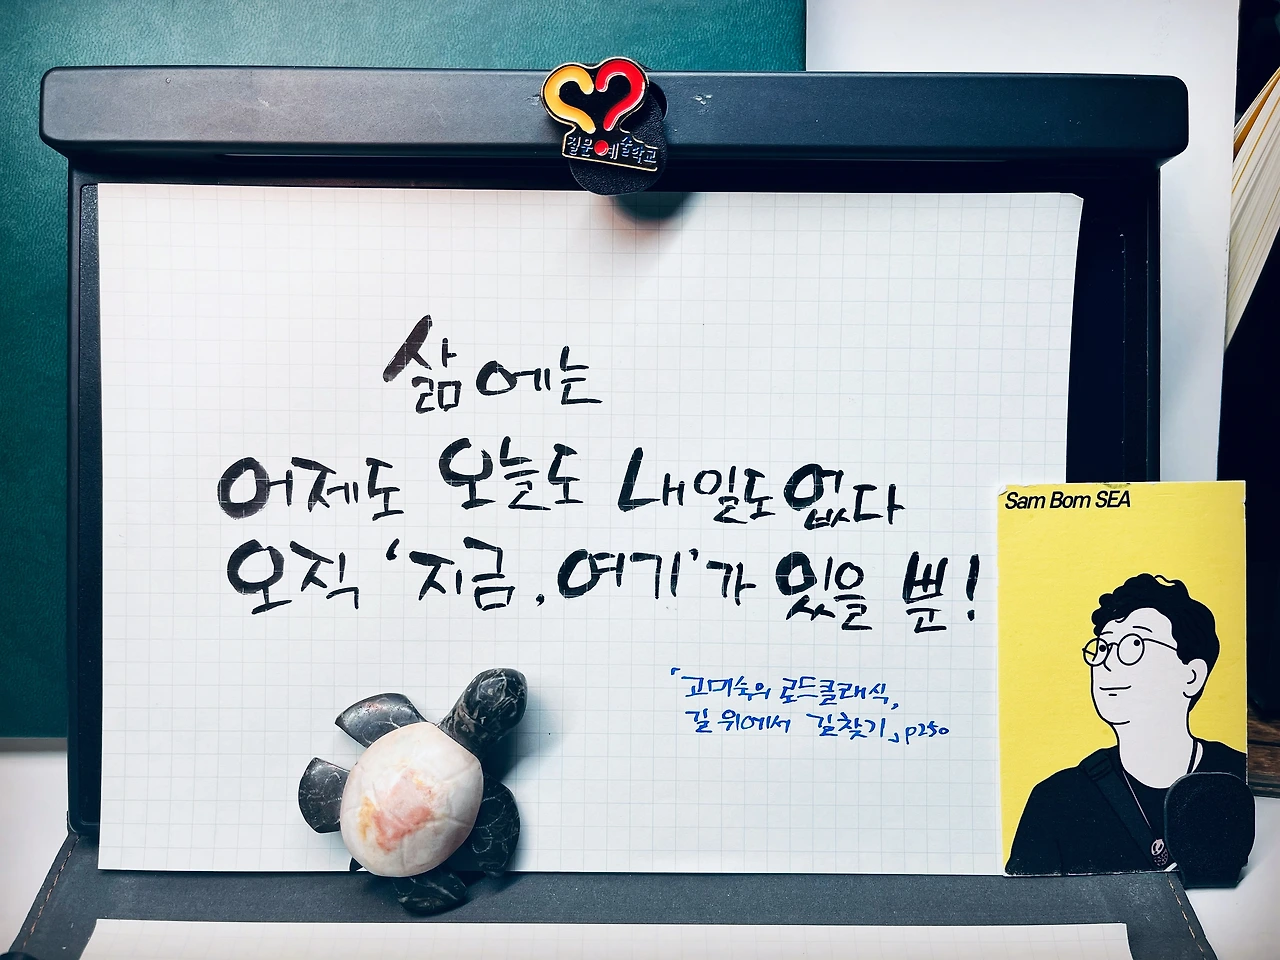 질문예술학교
삶에는
어제도 오늘도 내일도 없다
오직 ‘지금, 여기’가 있을 뿐!
「고미숙의 로드클래식,
길 위에서 길찾기」 p250
Sam Bom SEA